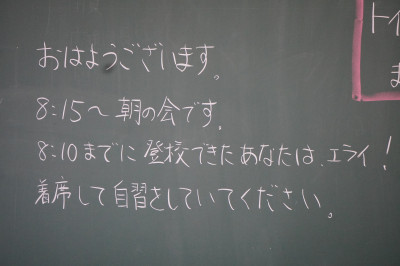 おはようございます。
8:15〜 朝の会です.
8:10までに 登校できたあなたは、エライ!
着席して自習をしていてください。
トイ
ま